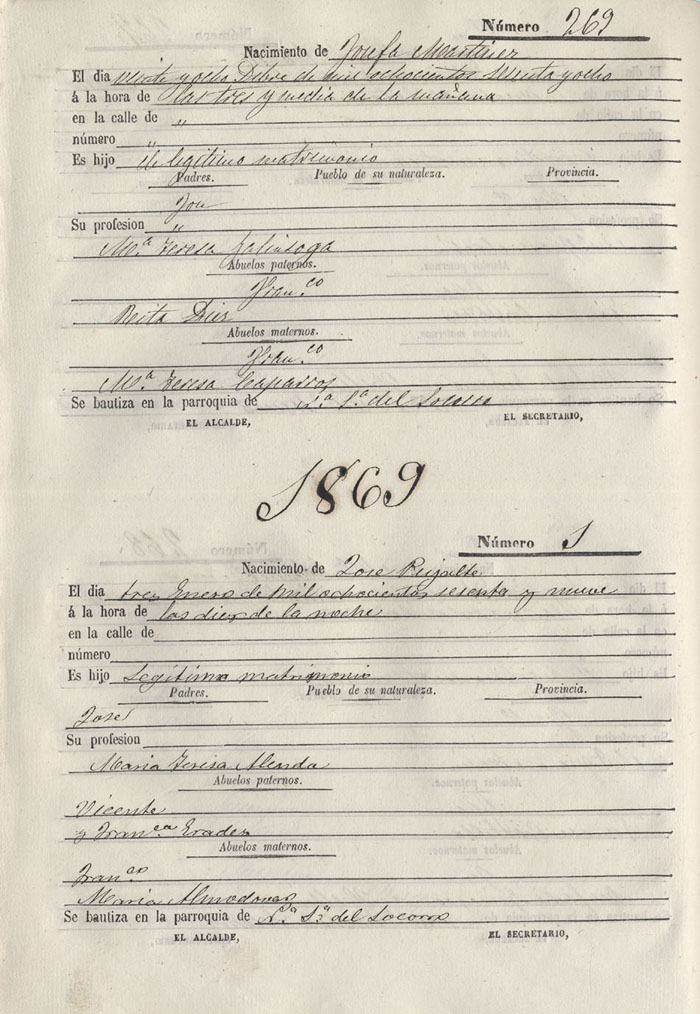 Número 269
Nacimiento de Josefa Martinez
El dia veinte y ocho Dibre de mil ochocientos sesenta y ocho
á la hora de las tres y media de la mañana
en la calle de "
número "
Es hijo de legitimo matrimonio
Padres. Pueblo de su naturaleza. Provincia.
Jose
Su profesion "
Mª Teresa Galiasoga
Abuelos paternos.
Franco
Rita Dias
Abuelos maternos.
Franco
Mª Teresa Caparros
Se bautiza en la parroquia de Nª Sª del Socorro
EL ALCALDE, EL SECRETARIO,
1869
Número 1
Nacimiento de Jose Rizalte
El dia tres Enero de mil ochocientos sesenta y nueve
á la hora de las diez de la noche
en la calle de
número
Es hijo Legítimo matrimonio
Padres. Pueblo de su naturaleza. Provincia.
José
Su profesion
Maria Teresa Alenda
Abuelos paternos.
Vicente
y Franca Erades
Abuelos maternos.
Franco
Maria Almodovar
Se bautiza en la parroquia de Nª Sª del Socorro
EL ALCALDE, EL SECRETARIO,